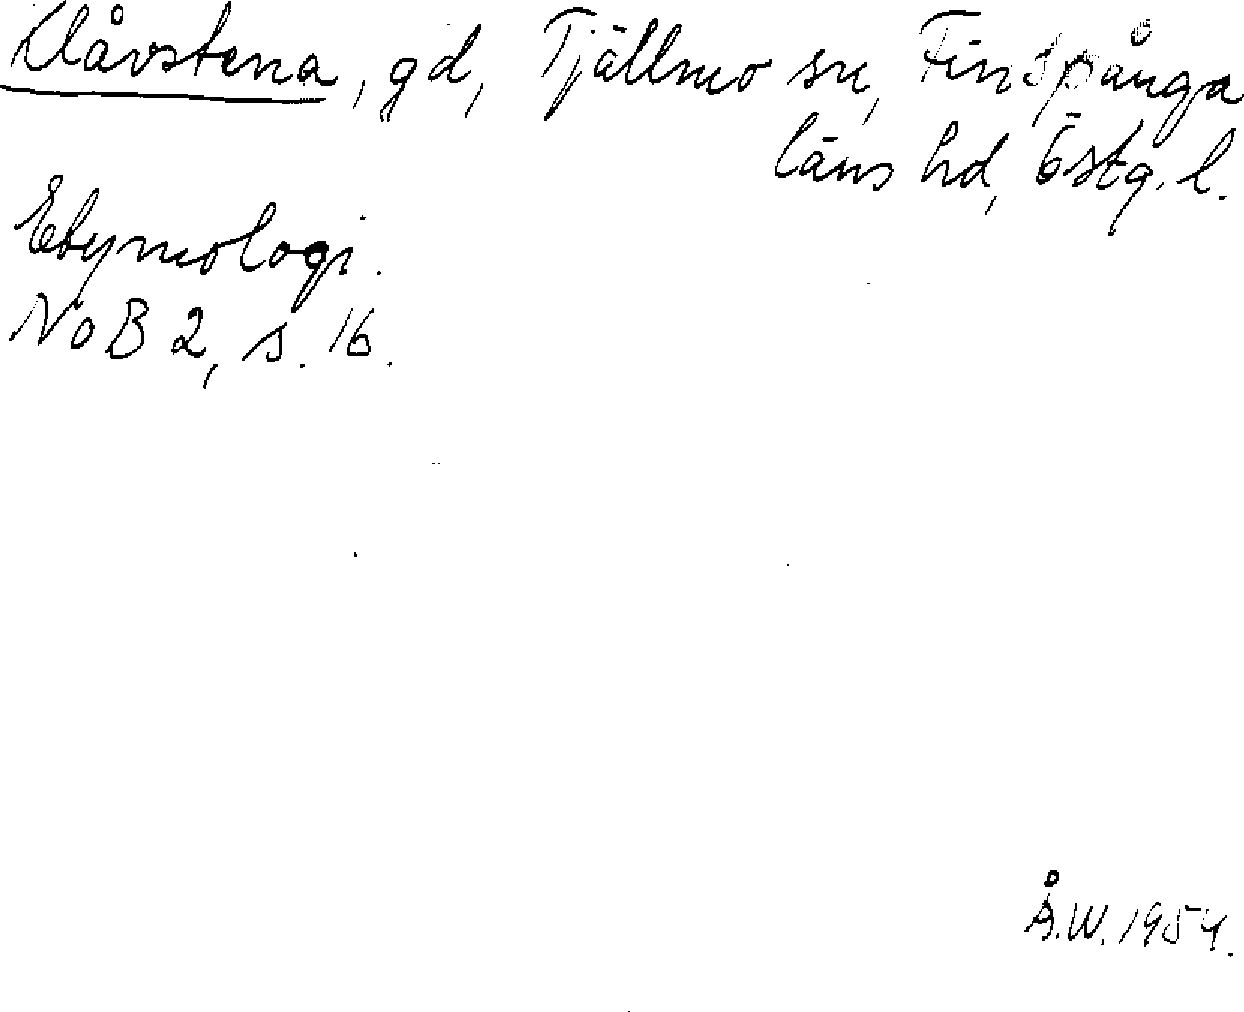 Klåvstena, gd, Tjällmo sn, Finspånga
läns hd, Östg. l.
Etymologi.
NoB 2, s. 16.
Å.W. 1954.